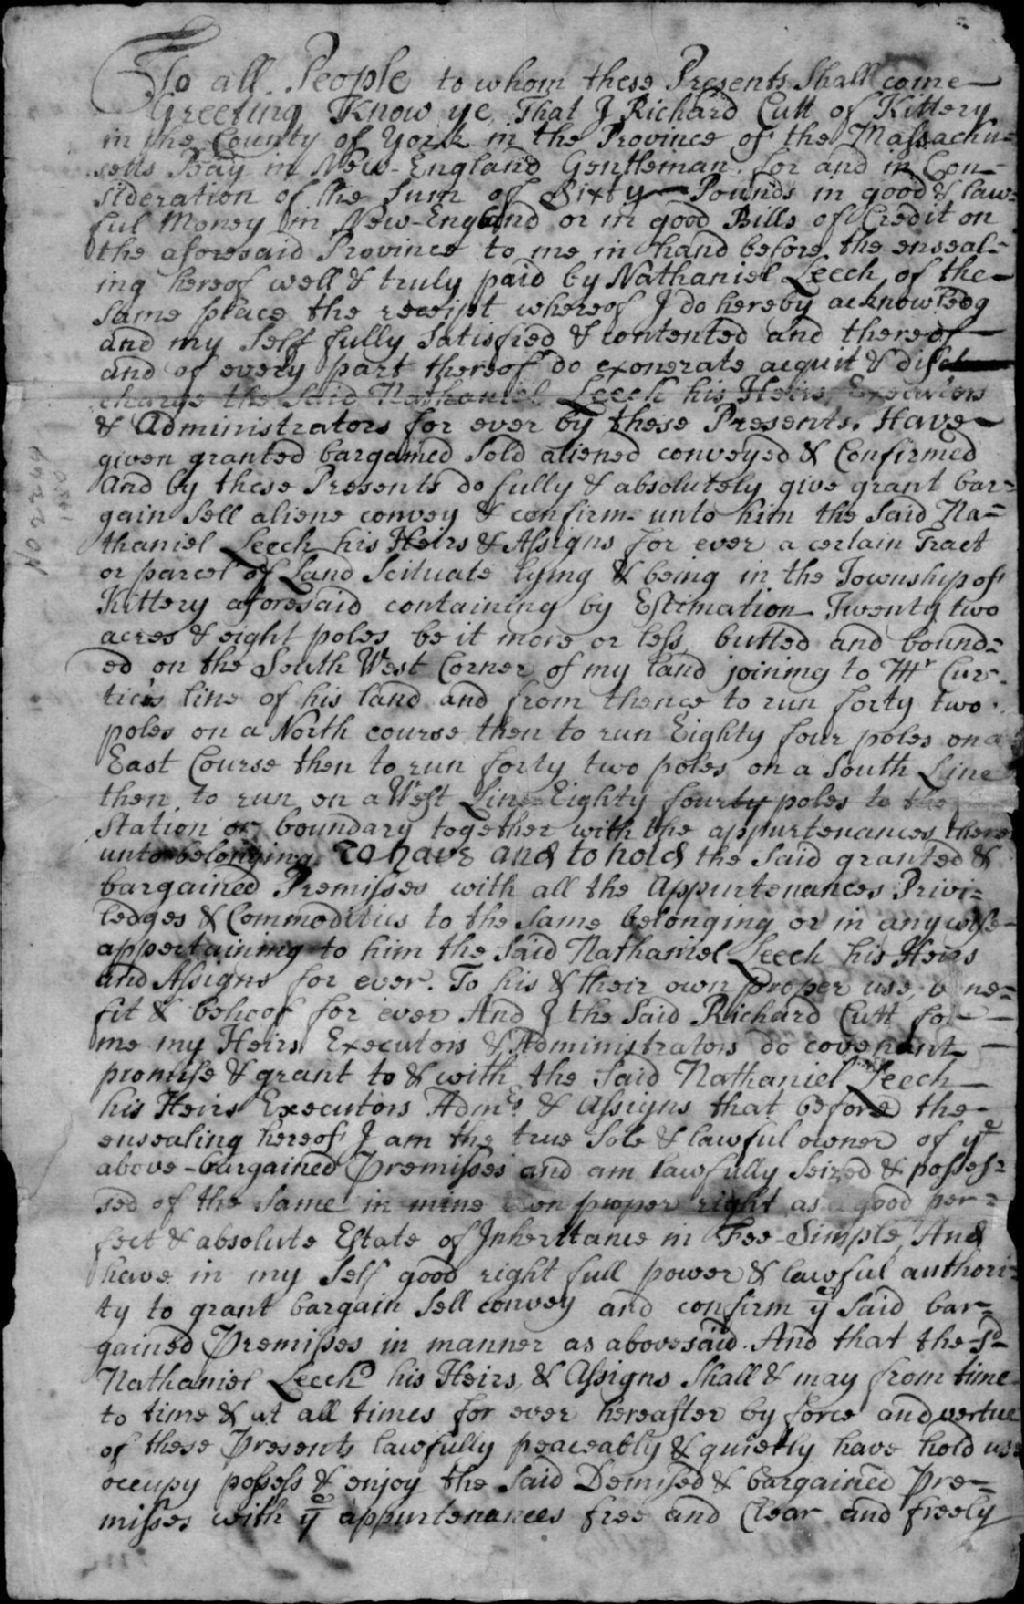 To all People to whom these Presents Shall come
Greeting Know ye That I Richard Cutt of Kittery
in the County of York in the Province of the Massachu=
setts Bay in New-England Gentleman for and in Con=
sideration of the Sum of Sixty Pounds in good & law=
ful Money in New-England or in good Bills of Credit on
the aforesaid Province to me in hand before the enseal=
ing hereof well & truly paid by Nathaniel Leech of the
Same place the receipt whereof I do hereby acknowledg
and my Self fully Satisfied & contented and thereof
and of every part thereof do exonerate acquit & disch
charge the Said Nathaniel Leech his Heirs Executors
& Administrators for ever by these Presents. Have
given granted bargained Sold aliened conveyed & Confirmed
And by these Presents do fully & absolutely give grant bar=
gain Sell aliene convey & confirm unto him the Said Na=
thaniel Leech his Heirs & Assigns for ever a certain Tract
or parcel of Land Scituate lying & being in the Township of
Kittery aforesaid containing by Estimation Twenty two
acres & eight poles be it more or less, butted and bound=
ed on the South West Corner of my land joining to Mr Cur=
tices line of his land and from thence to run forty two
poles on a North course then to run Eighty four poles on a
East Course then to run forty two poles on a South Line
then to run on a West Line Eighty fourty poles to the
Station or boundary together with the appurtenances there
unto belonging To have and to hold the Said granted &
bargained Premisses with all the Appurtenances Privi=
ledges & Commodities to the Same belonging or in any wise
appertaining to him the Said Nathaniel Leech his Heirs
and Assigns for ever. To his & their own proper use, bene=
fit & behoof for ever And I the Said Richard Cutt for
me my Heirs Executors & Administrators do covenant
promise & grant to & with the Said Nathaniel Leech
his Heirs Executors Admrs & Assigns that before the
ensealing hereof I am the true Sole & lawful owner of ye
above-bargained Premisses and am lawfully Seized & posses=
sed of the Same in mine own proper right as a good per=
fect & absolute Estate of Inheritance in Fee-Simple, And
have in my Self good right full power & lawful authori=
ty to grant bargain Sell convey and confirm ye Said bar=
gained Premisses in manner as abovesaid. And that the Sd
Nathaniel Leech his Heirs & Assigns Shall & may from time
to time & at all times for ever hereafter by force and vertue
of these Presents lawfully peaceably & quietly have hold use
occupy possess & enjoy the Said Demised & bargained Pre=
misses with ye appurtenances free and Clear and freely